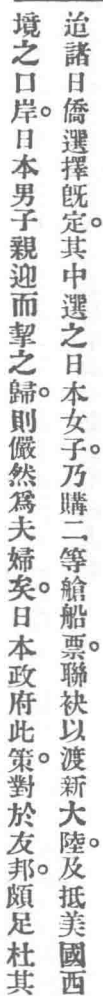 迨諸日僑選擇旣定。其中選之日本女子。乃購二等艙船票。聯袂以渡新大陸。及抵美國西
境之口岸。日本男子親迎而挈之歸。則儼然爲夫婦矣。日本政府此策。對於友邦。頗足杜其